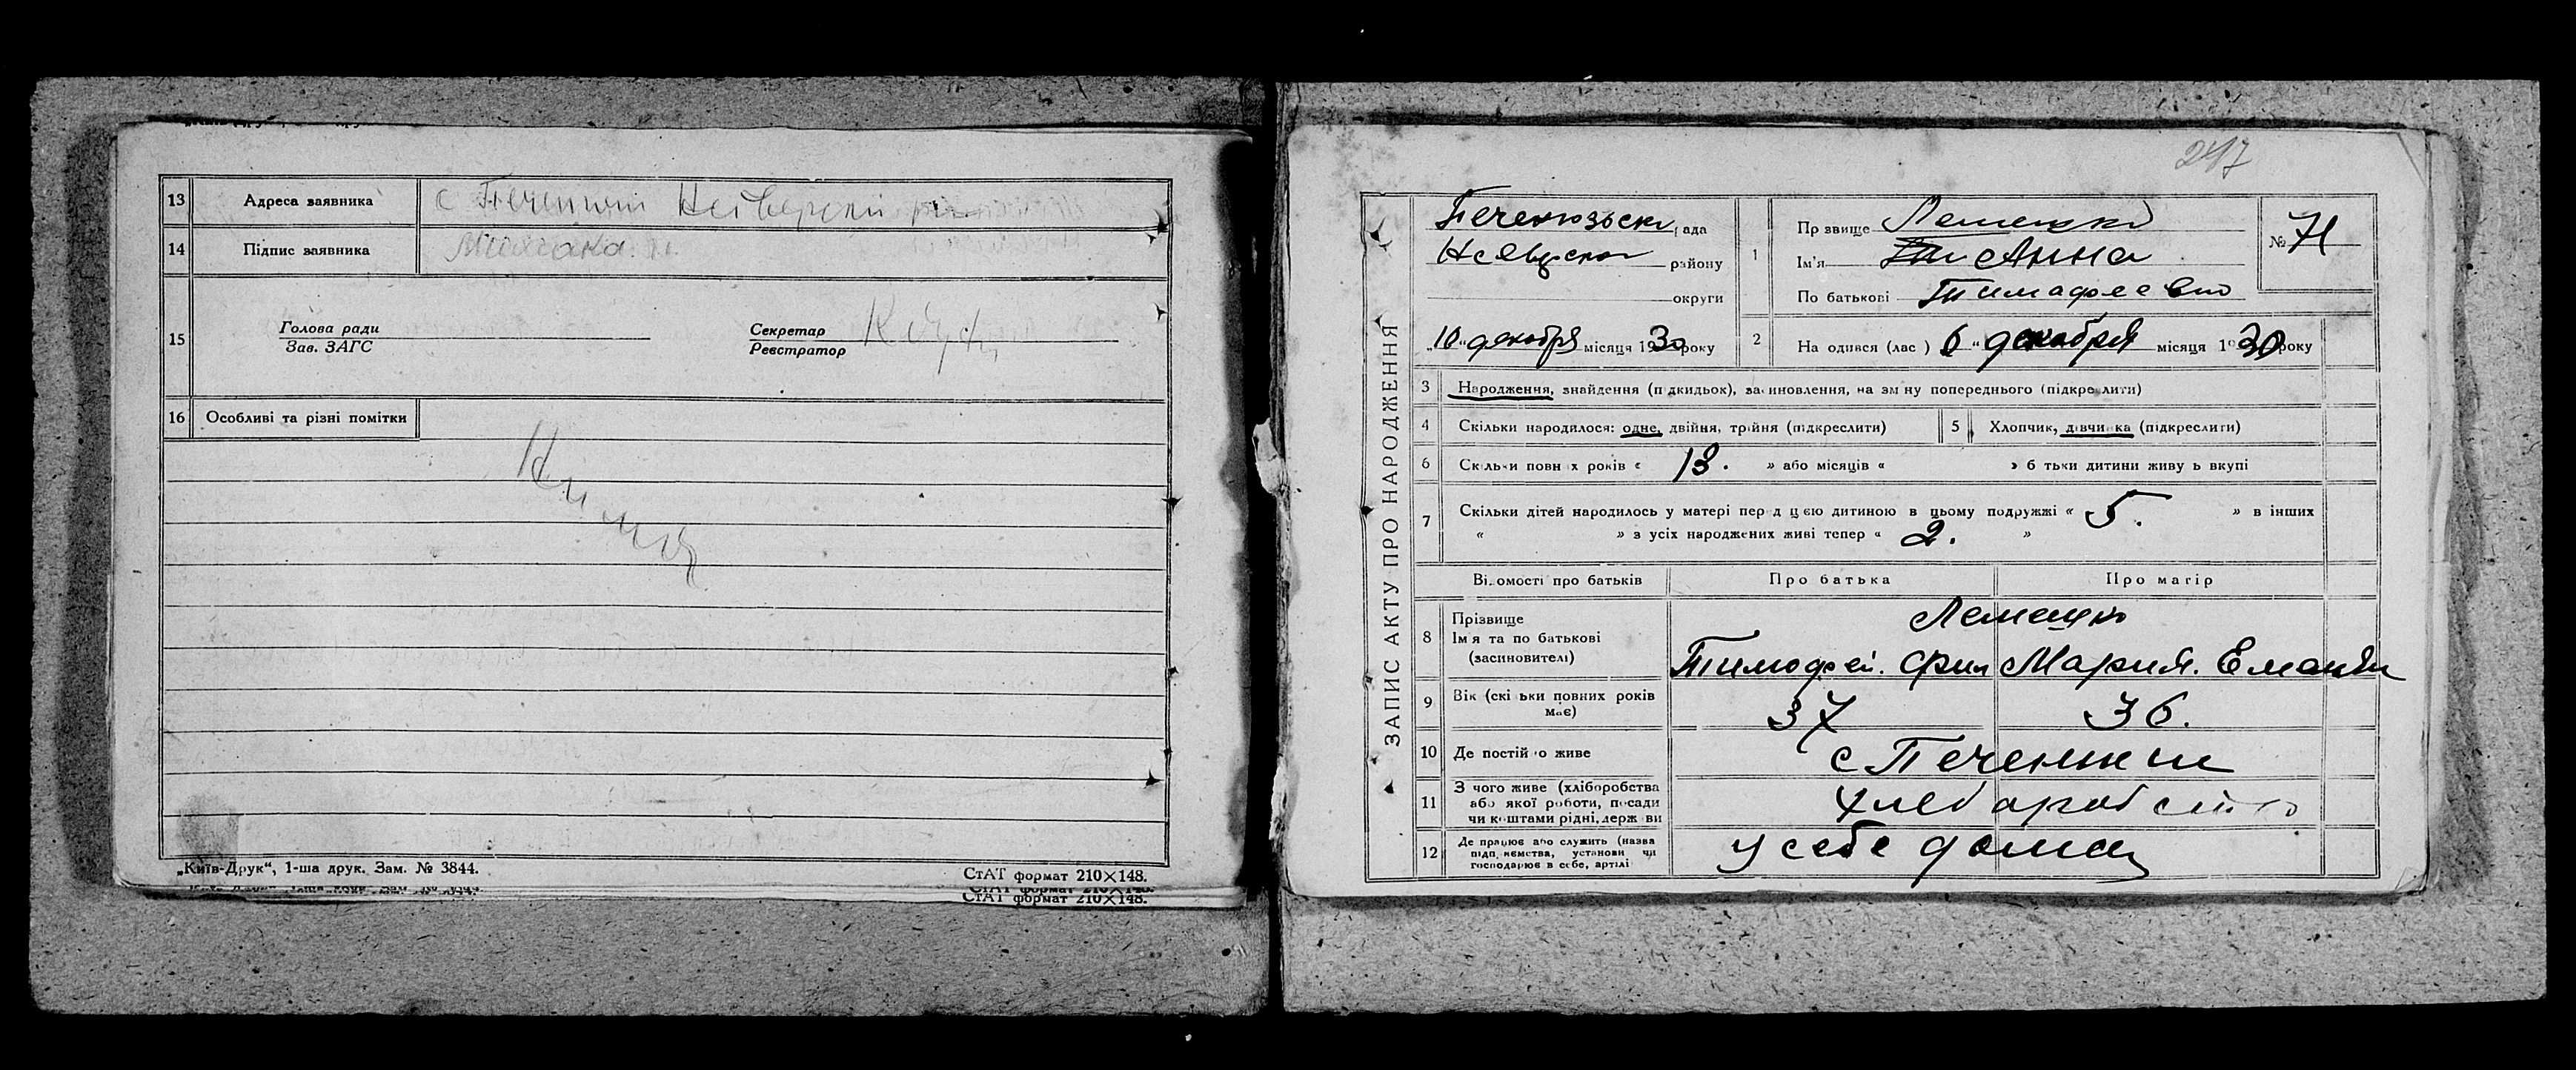 13 Адреса заявника с Печенюги
14 Підпис заявника
15 Голова ради
Зав. ЗАГС
Секретар
Реєстратор
16 Особливі та різні помітки
„Київ-Друк“, 1-ша друк. Зам. № 3844.
СтАТ формат 210×148.
СтАТ формат 210×148.
СтАТ формат 210×148.
247
ЗАПИС АКТУ ПРО НАРОДЖЕННЯ
Печенюзьска рада
району
округи
„10“ декобря місяця 1930 року
1 Прізвище Лемешко
Ім'я Анна
По батькові Тимафеевно
№ 71
2 На одився (лас ) 6 “ декабря місяця 1930 року
3 Народження, знайдення (підкидьок), засиновлення, на зміну попереднього (підкреслити)
4 Скільки народилося: одне, двійня, трійня (підкреслити)
5 Хлопчик, дівчинка (підкреслити)
6 Скільки повних років « 13. » або місяців « » батьки дитини живуть вкупі
7 Скільки дітей народилось у матері перед цією дитиною в цьому подружжі « 5. » в інших
« » з усіх народжених живі тепер « 2. »
Відомості про батьків Про батька Про матір
8 Прізвище
Ім'я та по батькові
(засиновителі)
Лемешко
Тимофей. Фил Мария. Емания
9 Вік (скільки повних років
має)
37 36.
10 Де постійно живе с Печенюги
11 З чого живе (хліборобства
або якої роботи, посади
чи коштами рідні, держави
хлебаработство
12 Де працює або служить (назва
підприємства, установи чи
господарює в себе, артілі
у себе дома